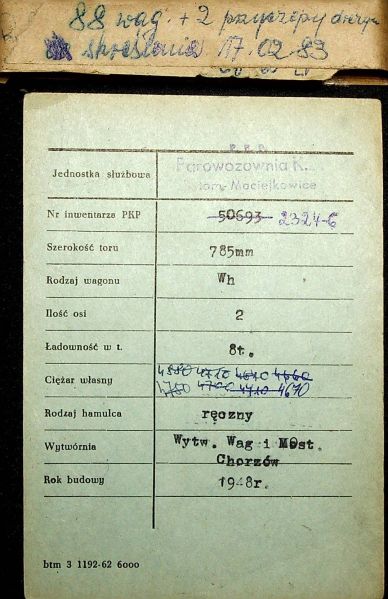 88 wag. + 2 przyczepy
skreślenia 17.02.83
P.K.P.
Parowozownia K
Maciejkowice
Jednostka służbowa
Nr inwentarza PKP 50693 2324-6
Szerokość toru 785mm
Rodzaj wagonu Wh
Ilość osi 2
Ładowność w t. 8t.
Ciężar własny 4880 4710 4640 4660
4780 4700 4710 4670
Rodzaj hamulca ręczny
Wytwórnia Wytw. Wag i Most.
Chorzów
Rok budowy 1948r.
btm 3 1192-62 6000